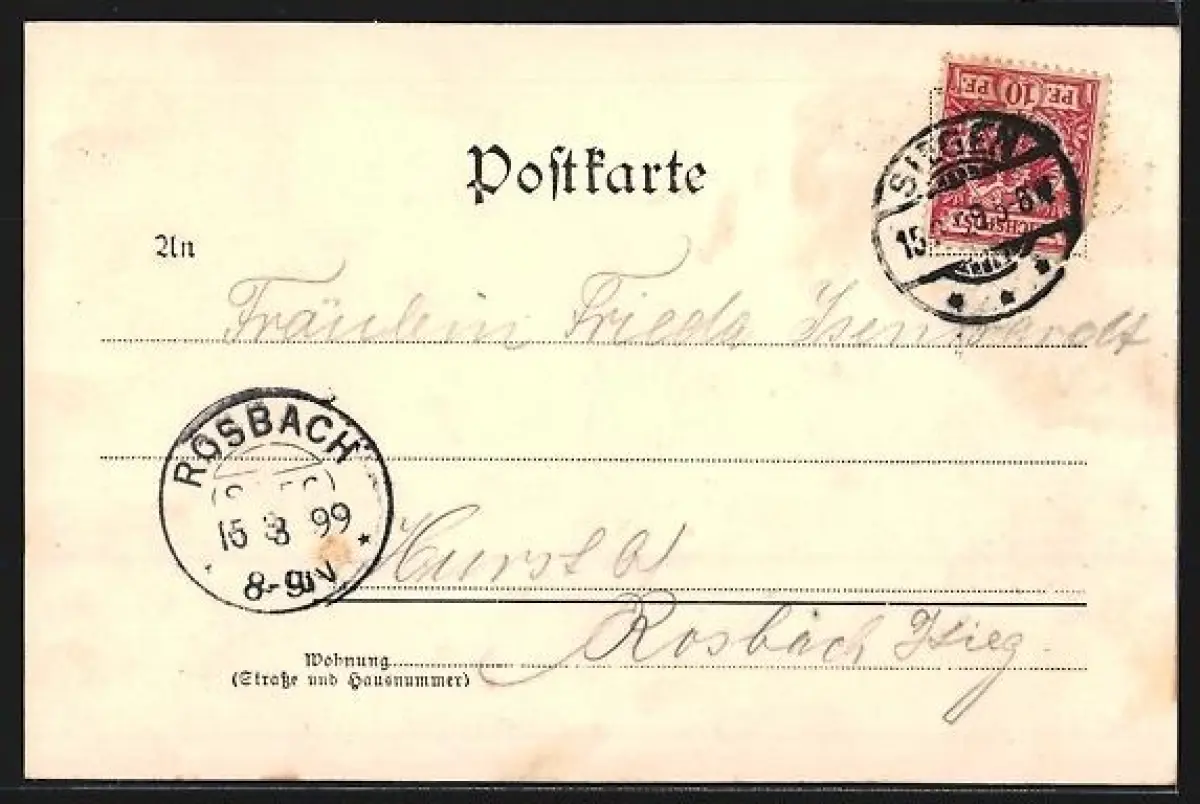 PF. 10 PF.
SIEGEN
15
8-
Postkarte
An
Fräulein Frieda
ROSBACH
(SIEG)
15 8 99
8-9 N
Hurst
Rosbach Sieg
Wohnung
(Straße und Hausnummer)